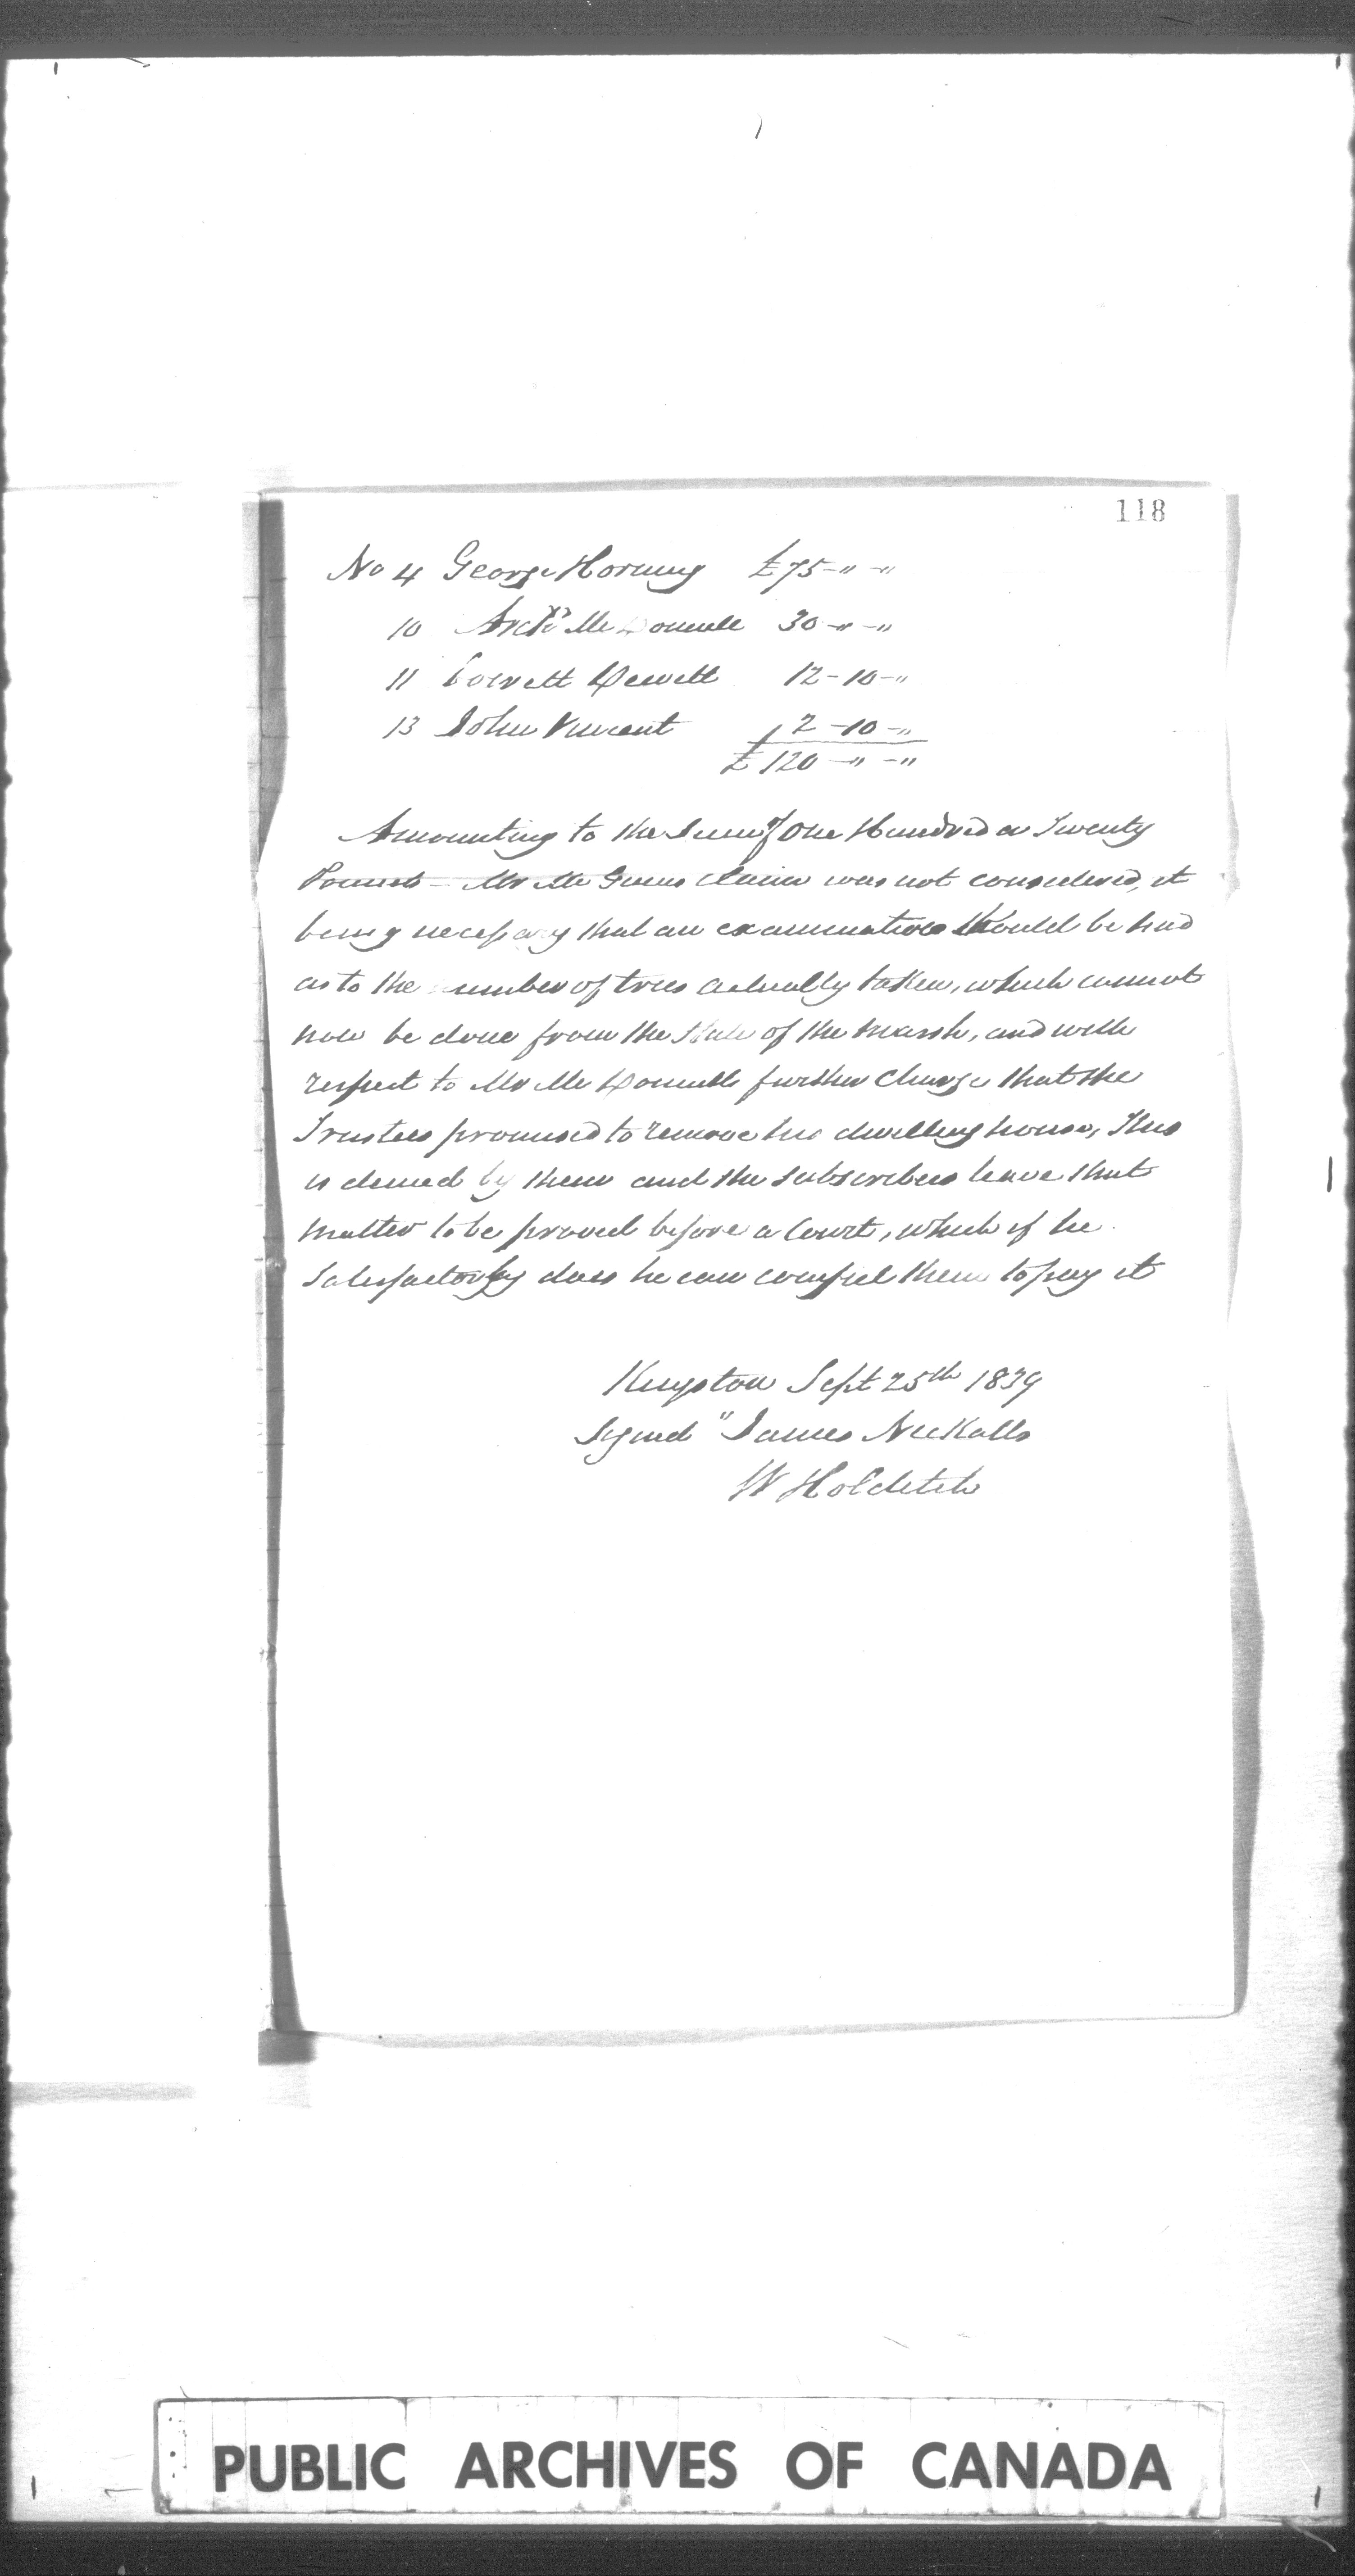 118
No 4 George Horning £75-"-"
10 Archd Mc Donell 30-"-"
11 Hewett 12-10-"
13 John Vincent 2-10-"
£120-"-"
Amounting to the Sum of One Hundred & Twenty
Pounds - Mr Mc claim was not considered, it
being necessary that an examination should be had
as to the number of trees actually taken, which cannot
now be done from the State of the Marsh, and with
respect to Mr Mc Donells further charge that the
Trustees promised to remove his dwelling house, This
is denied by them and the subscribers leave that
matter to be proved before a Court, which if he
Satisfactorily does he can compel them to pay it
Kingston Sept 25th 1839
Signed "James Nickalls
W Holditch
PUBLIC ARCHIVES OF CANADA